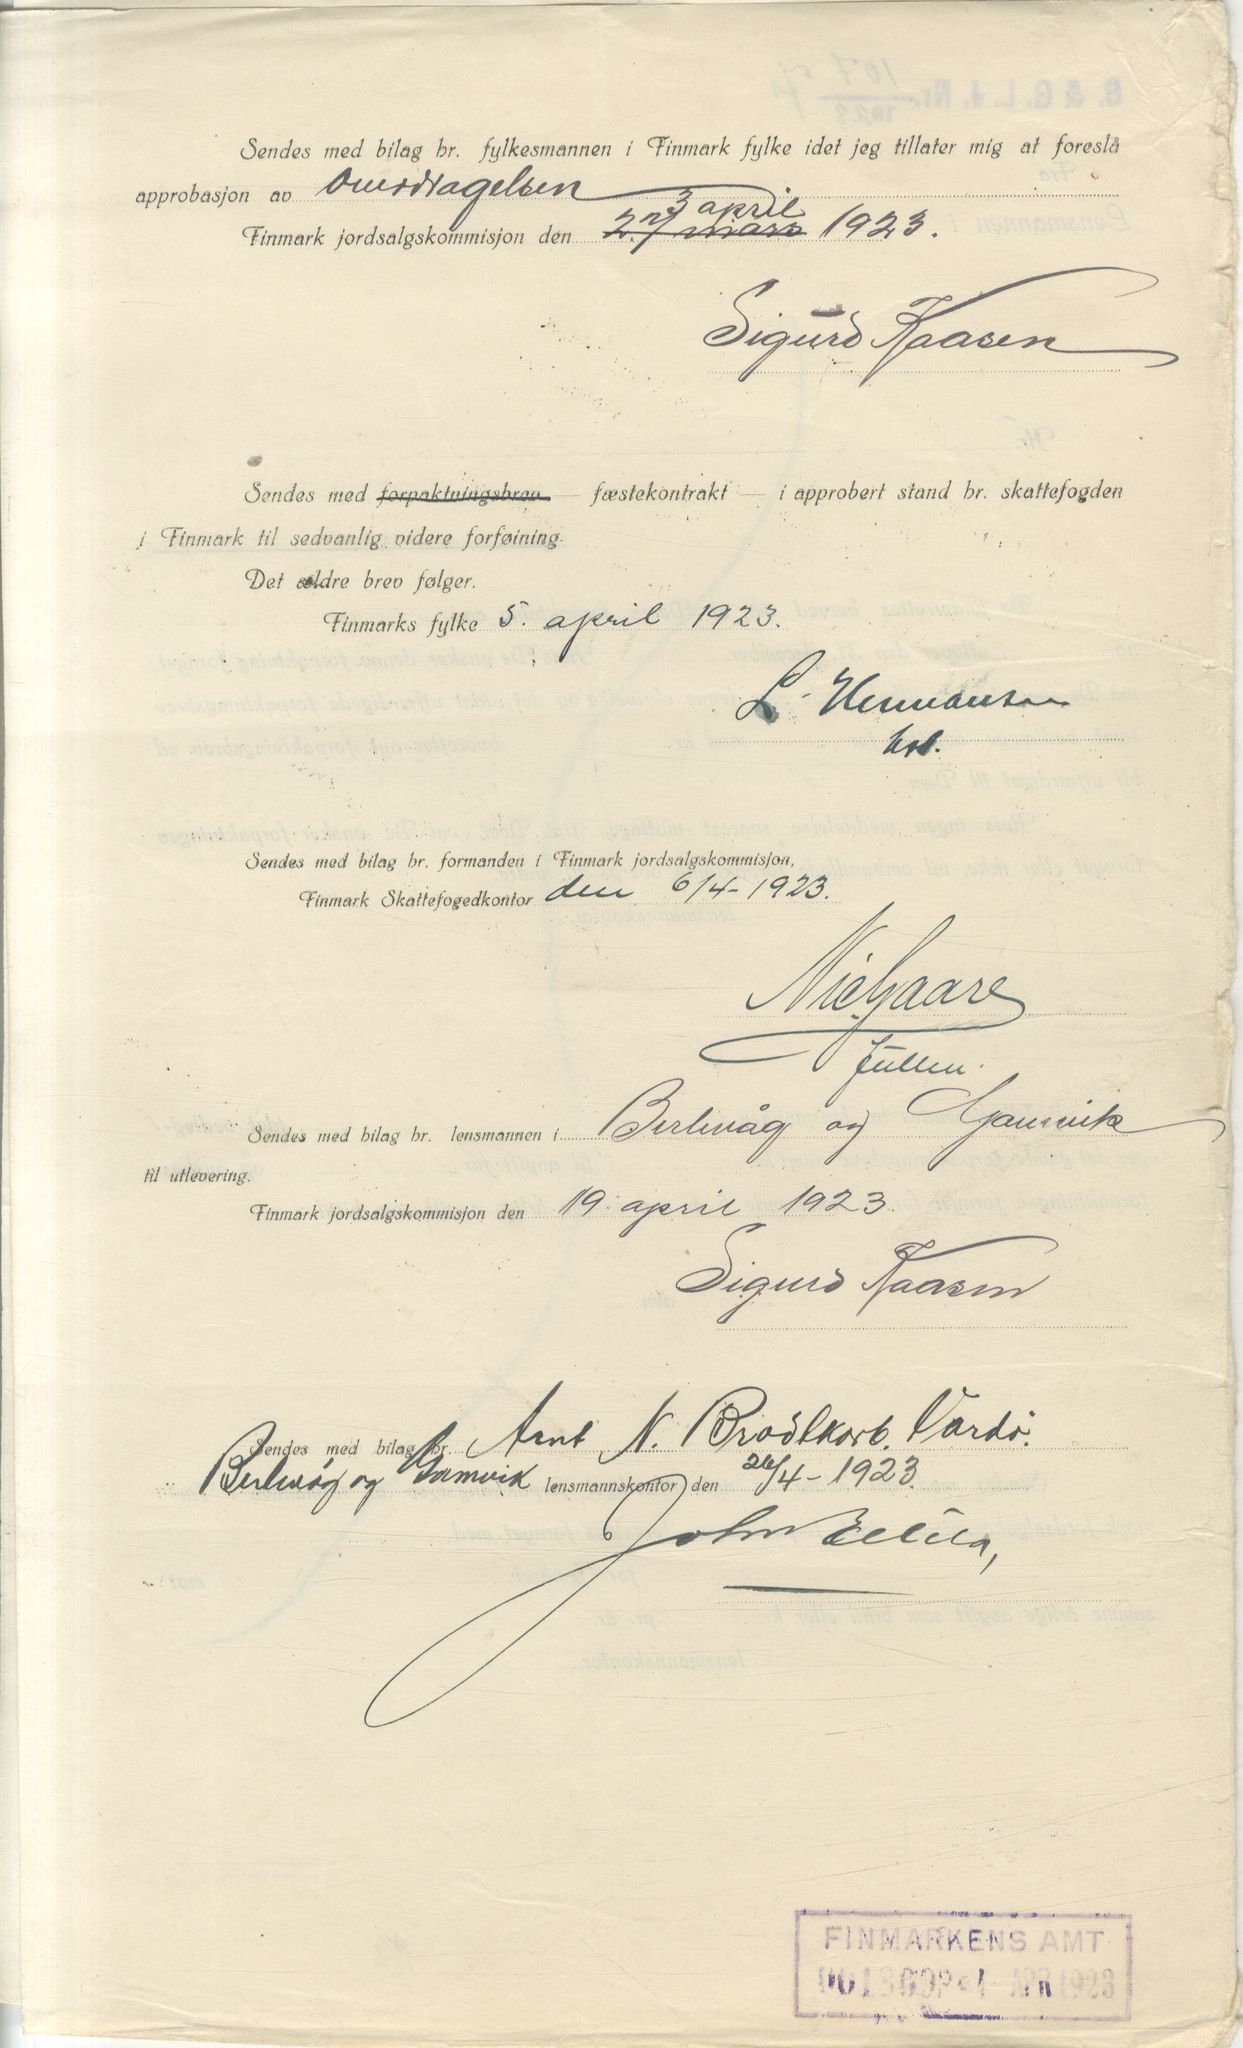 Sendes med bilag hr. fylkesmannen i Finmark fylke idet jeg tillater mig at foreslå
approbasjon av Omsdragelsen
3 april
Finmark jordsalgskommisjon den 27 mars 1923.
Sigurd Kaasen
Sendes med forpaktningsbrev — fæstekontrakt — i approbert stand hr. skattefogden
i Finmark til sedvanlig videre forføining.
Det ældre brev følger.
Finmarks fylke 5. april 1923.
L. Hermansen
Sendes med bilag hr. formanden i Finmark jordsalgskommisjon,
Finmark Skattefogedkontor den 6/4-1923.
Nic. Gaare
fullm.
Sendes med bilag hr. lensmannen i Berlevåg og Gamvik
til utlevering.
Finmark jordsalgskommisjon den 19. april 1923
Sigurd Kaasen
Sendes med bilag hr. Arnt N. Brodtkorb. Vardø.
Berlevåg og Gamvik lensmannskontor den 26/4-1923.
John
FINMARKENS AMT
APR 1923